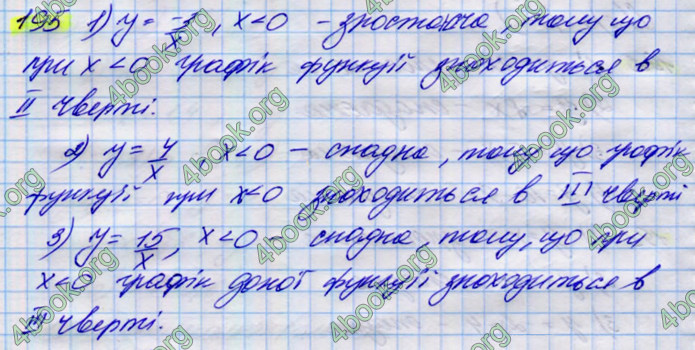 195 1) y = -3/x, x<0 - зростаюча - тому що
при x<0 графік функції знаходиться в
II чверті.
2) y = 4/x, x<0 - спадна, тому що графік
функції при x<0 знаходиться в III чверті
3) y = 15/x, x<0 - спадна, тому, що при
x<0 графік даної функції знаходиться в
III чверті.
4book.org